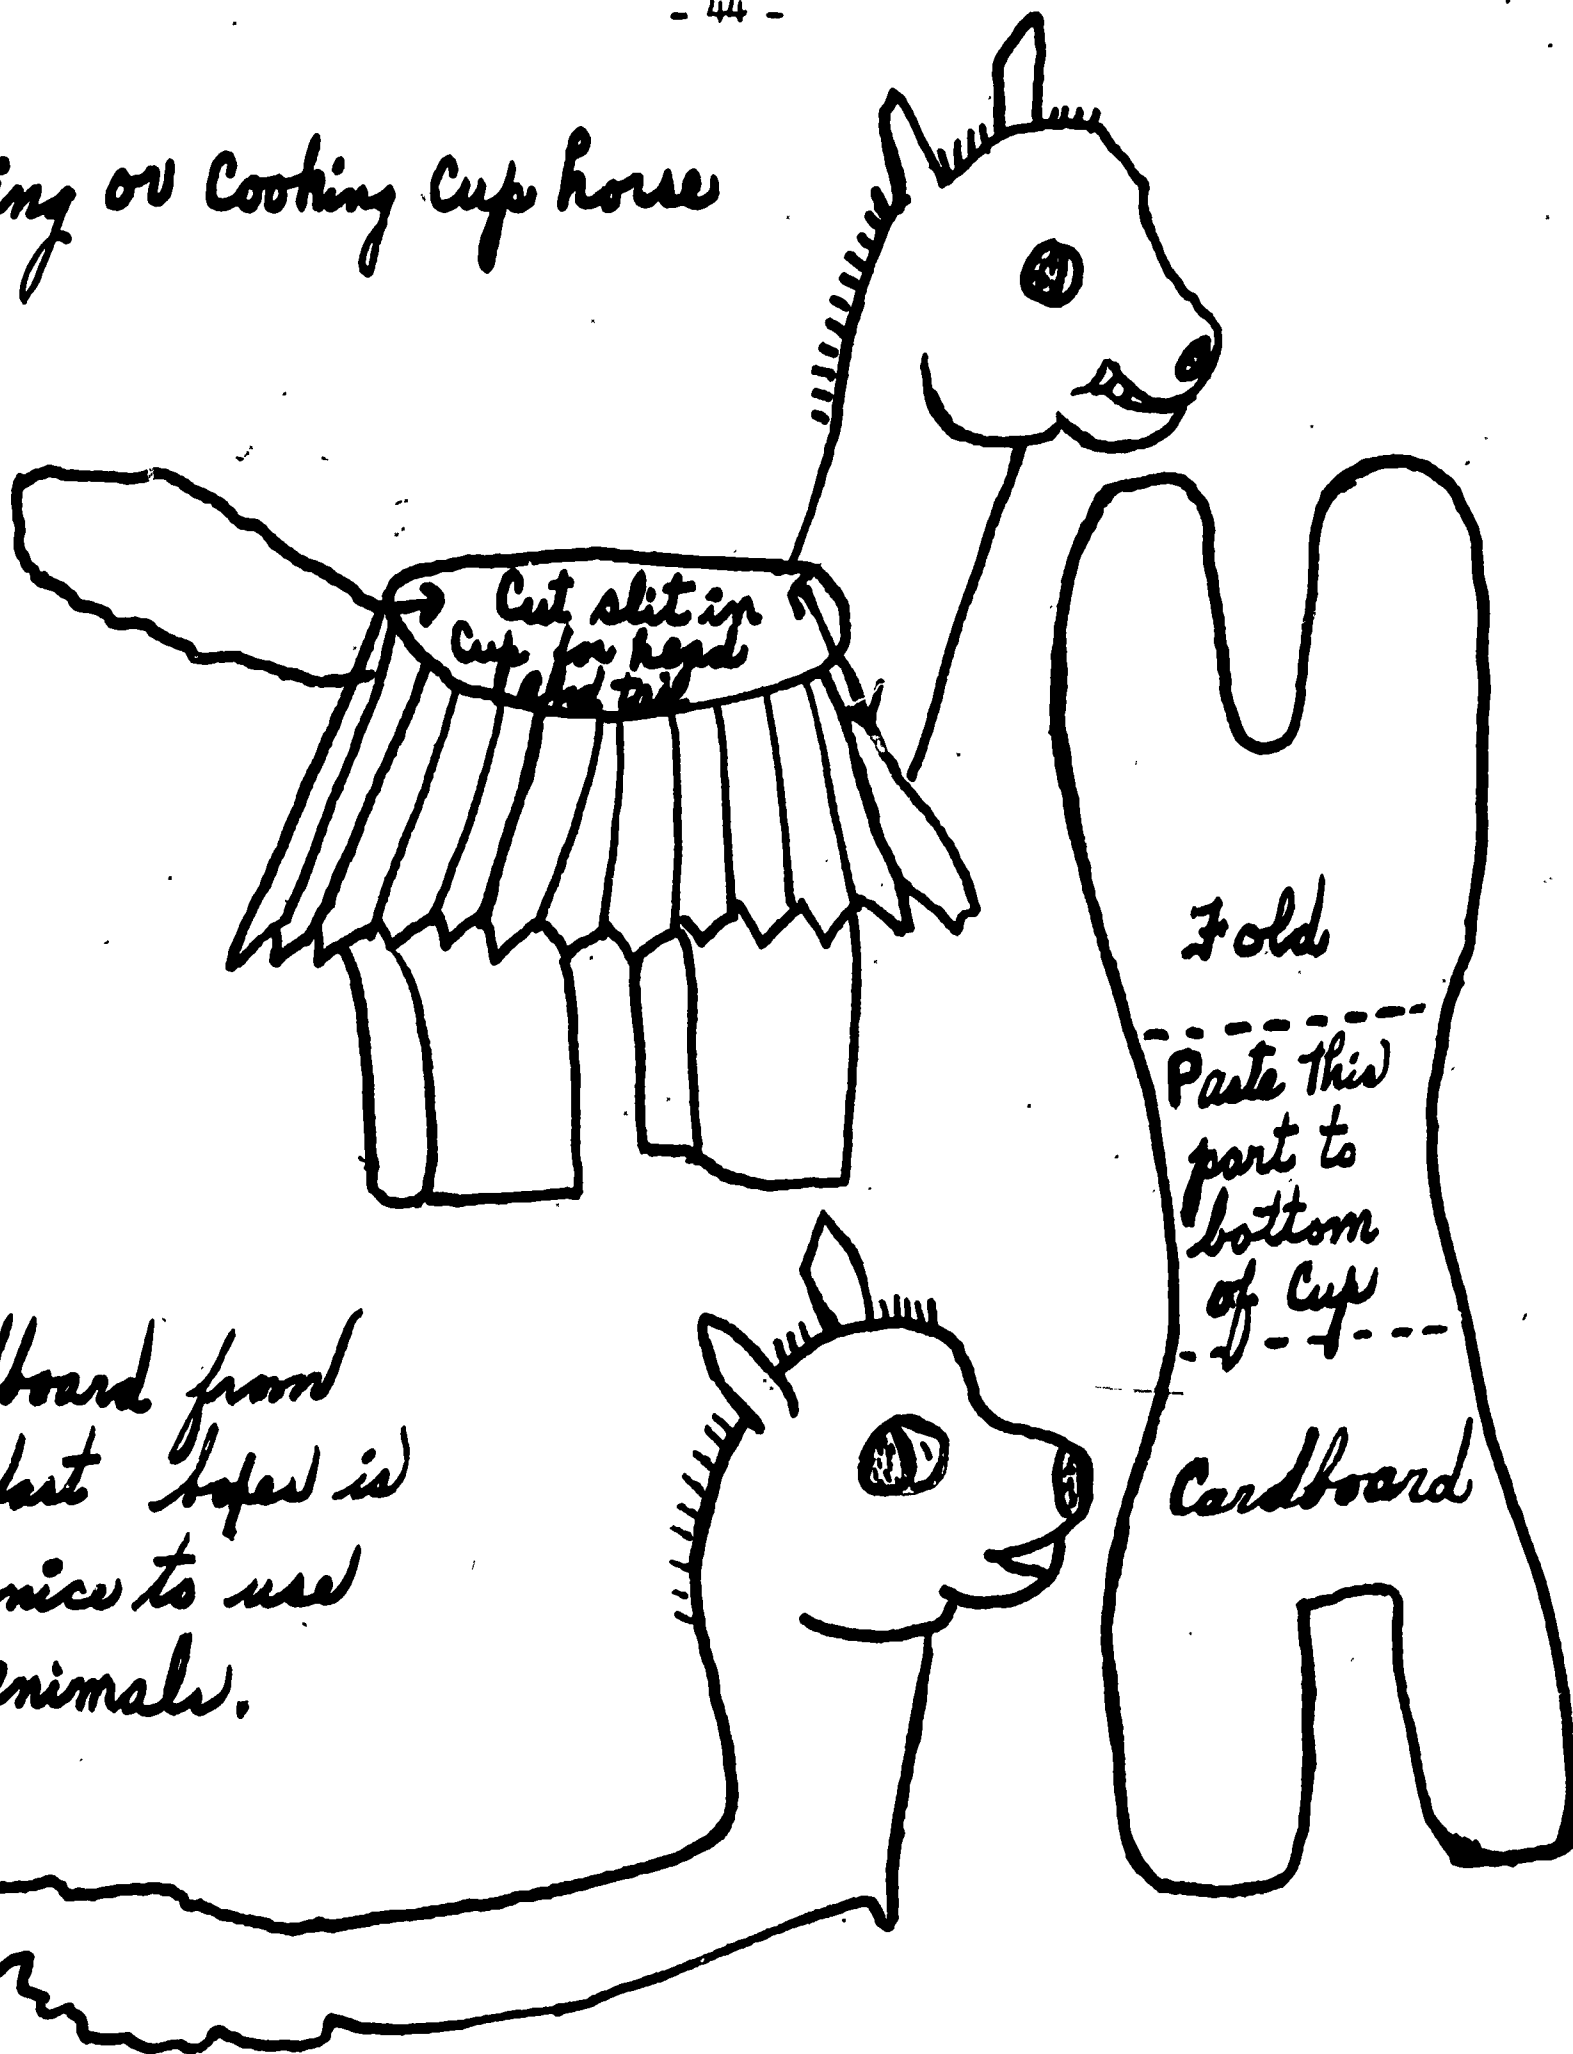 - 44 -
ing or Cooking Cup horse
Cut slit in
Cup for head
and tail
Fold
Paste This
part to
bottom
of Cup
Cardboard
board from
fast boxes is
nice to use
animals.